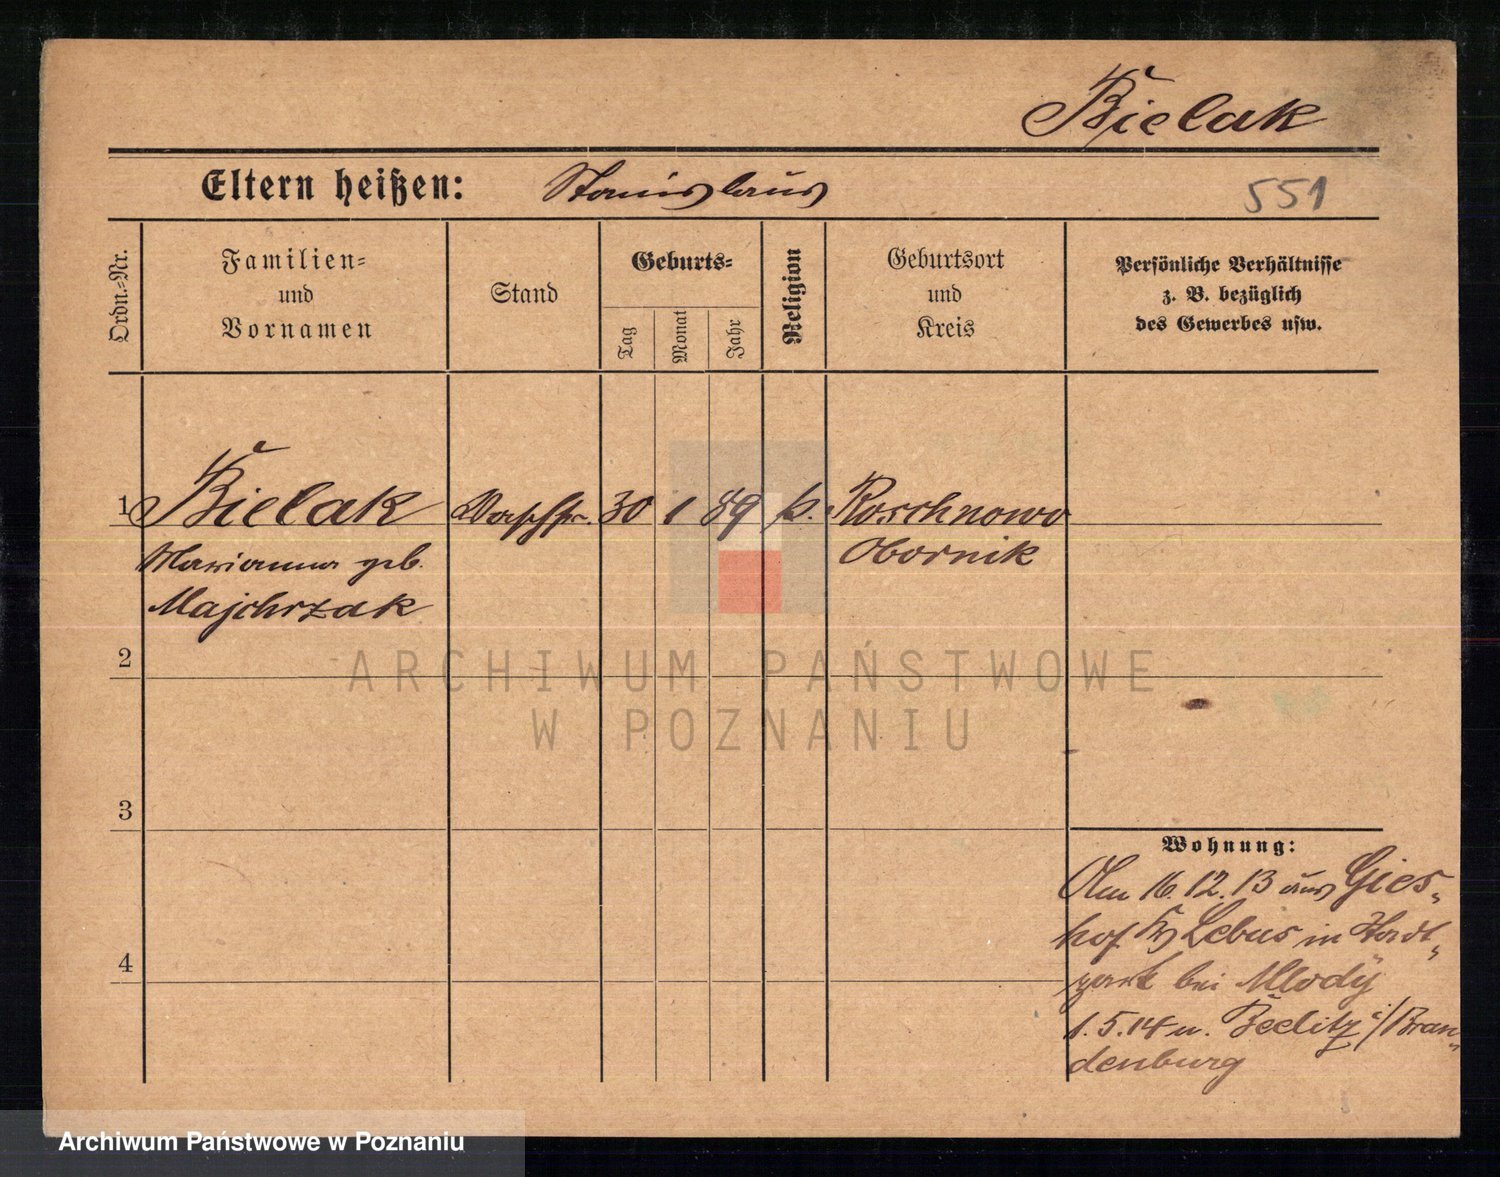 Bielak
Eltern heißen: Stanislaus
551
Ordn.=Nr.
Familien=
und
Vornamen
Stand
Geburts=
Tag
Monat
Jahr
Religion
Geburtsort
und
Kreis
Persönliche Verhältnisse
z. B. bezüglich
des Gewerbes usw.
1 Bielak 30 1 89 k. Roschnowo
Marianna geb. Obornik
Majchrzak
2
ARCHIWUM PAŃSTWOWE
W POZNANIU
3
Wohnung:
Am 16.12.13 aus Gies-
hof Kr Lebus in Stadt-
park bei Mlody
4
1.5.14 n. Beelitz i/Bran-
denburg
Archiwum Państwowe w Poznaniu